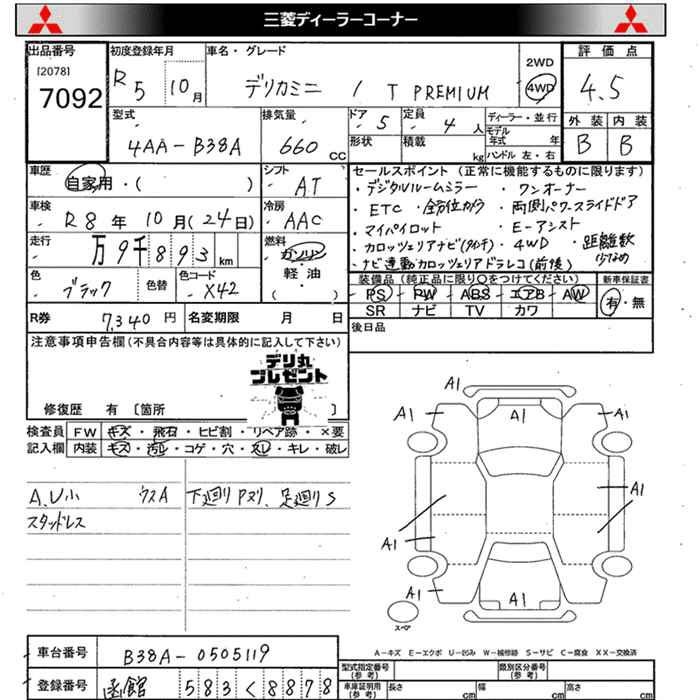 三菱ディーラーコーナー
出品番号
[2078]
7092
初度登録年月
R5 10月
車名・グレード
デリカミニ / T PREMIUM
2WD
4WD
評価点
4.5
外装 内装
B B
型式
4AA-B38A
排気量
660 cc
ドア 5
定員 4 人
形状
積載 kg
ディーラー・並行
モデル年式 年
ハンドル 左・右
車歴
自家用・( )
シフト
AT
車検
R8年10月(24日)
冷房
AAC
走行
万9千893 km
燃料
ガソリン
軽油
( )
色
ブラック
色替
色コード
X42
R券
7,340円
名変期限 月 日
セールスポイント (正常に機能するものに限ります)
・デジタルルームミラー ・ワンオーナー
・ETC ・全方位カメラ ・両側パワースライドドア
・マイパイロット ・E-アシスト
・カロッツェリアナビ(9インチ) ・4WD ・距離数少なめ
・ナビ連動カロッツェリアドラレコ(前後)
装備品(純正品に限り○をつけてください)
新車保証書
PS PW ABS エアB AW
SR ナビ TV カワ
有・無
後日品
注意事項申告欄(不具合内容等は具体的に記入して下さい)
デリ丸
プレゼント
修復歴 有 〔箇所 〕
検査員 FW キズ・飛石・ヒビ割・リペア跡・×要
記入欄 内装 キズ・汚レ・コゲ・穴・スレ・キレ・破レ
A、U小 ウスA
スタッドレス
下廻りPヌリ、足廻りS
A1
A1
A1
A1
A1
A1
A1
A1
スペア
A-キズ E-エクボ U-凹み W-補修跡 S-サビ C-腐食 XX-交換済
車台番号
B38A-0505119
登録番号
函館 583 く 8878
型式指定番号(参考)
類別区分番号(参考)
車庫証明用(参考)
長さ cm
幅 cm
高さ cm